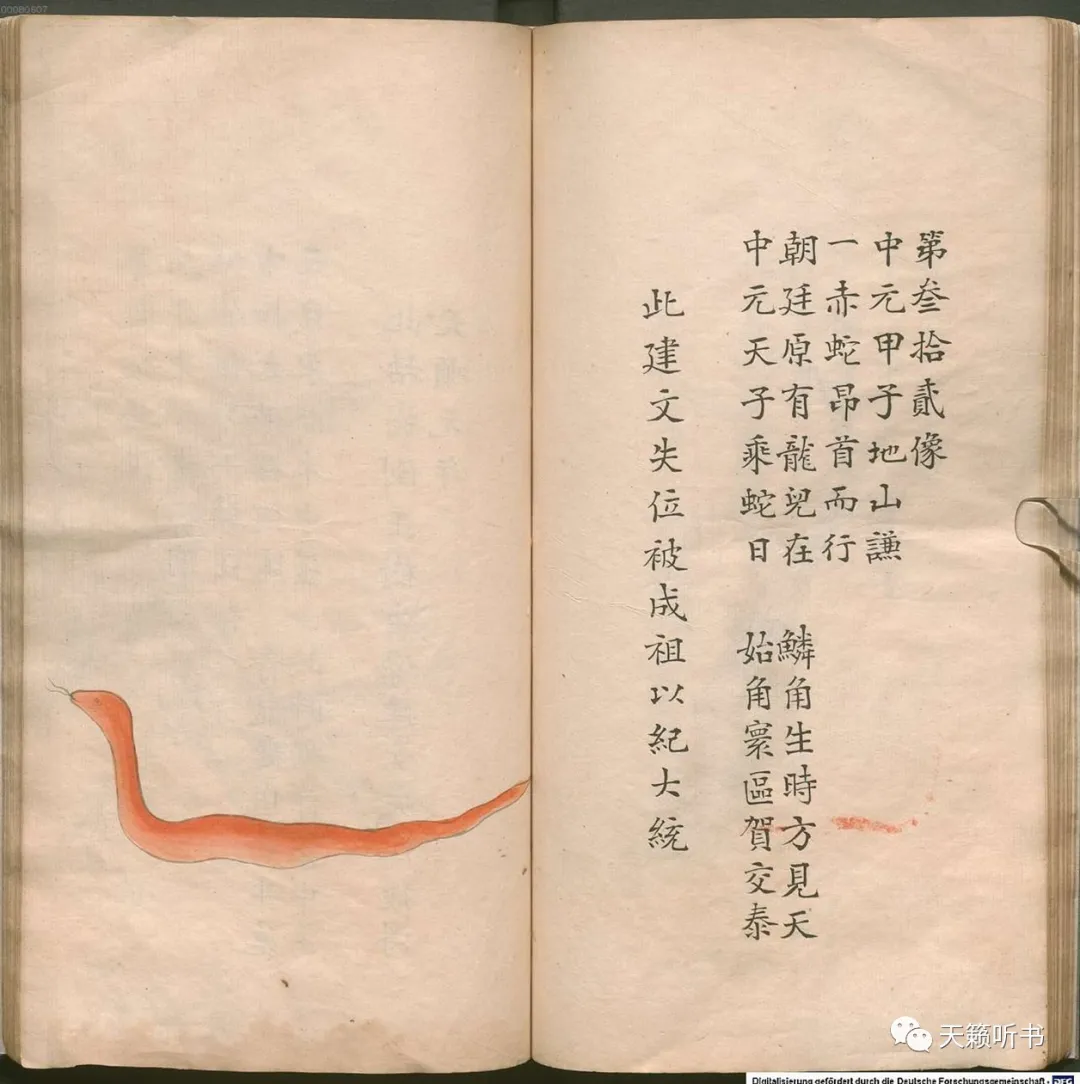 00000607
第叄拾貳像
中元甲子地山謙
一赤蛇昂首而行
朝廷原有龍兒在 鱗角生時方見天
中元天子乘蛇日 始角寰區賀交泰
此建文失位被成祖以紀大統
天籁听书
Digitalisierung gefördert durch die Deutsche Forschungsgemeinschaft - DFG